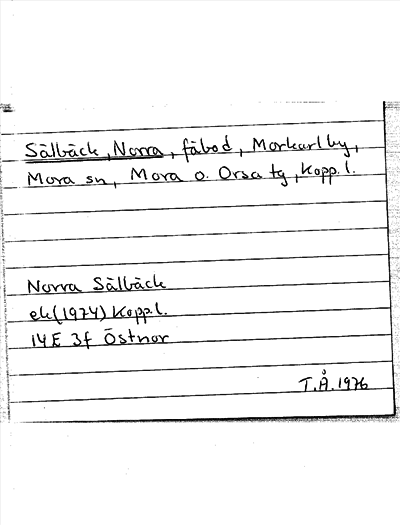 Sälbäck, Norra, fäbod, Morkarlby,
Mora sn, Mora o. Orsa tg, Kopp. l.
Norra Sälbäck
ek (1974) Kopp. l.
14E 3f Östnor
T.Å. 1976